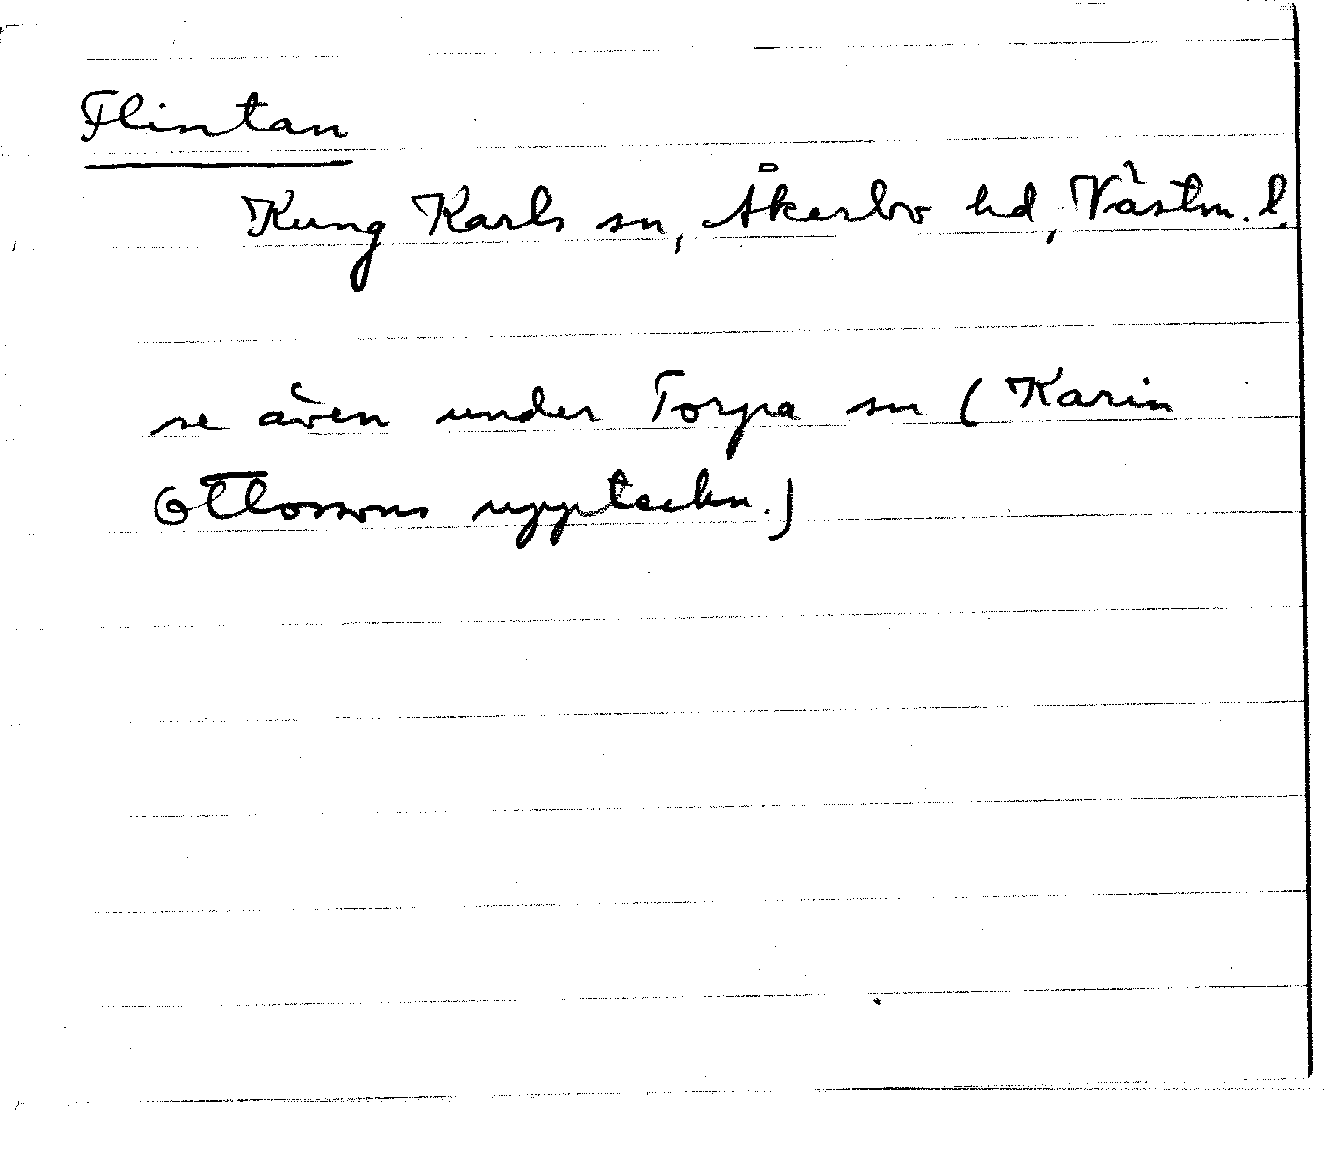 Flintan
Kung Karls sn, Åkerbo hd, Västm. l.
se även under Torpa sn (Karin
Ottossons uppteckn.)